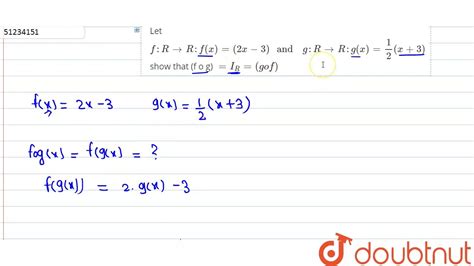 51234151
Let
f : R → R : f(x) = (2x − 3) and g : R → R : g(x) = 1/2 (x + 3)
show that (f o g) = I_R = (gof)
f(x) = 2x - 3 g(x) = 1/2 (x + 3)
fog(x) = f(g(x)) = ?
f(g(x)) = 2. g(x) - 3
doubtnut